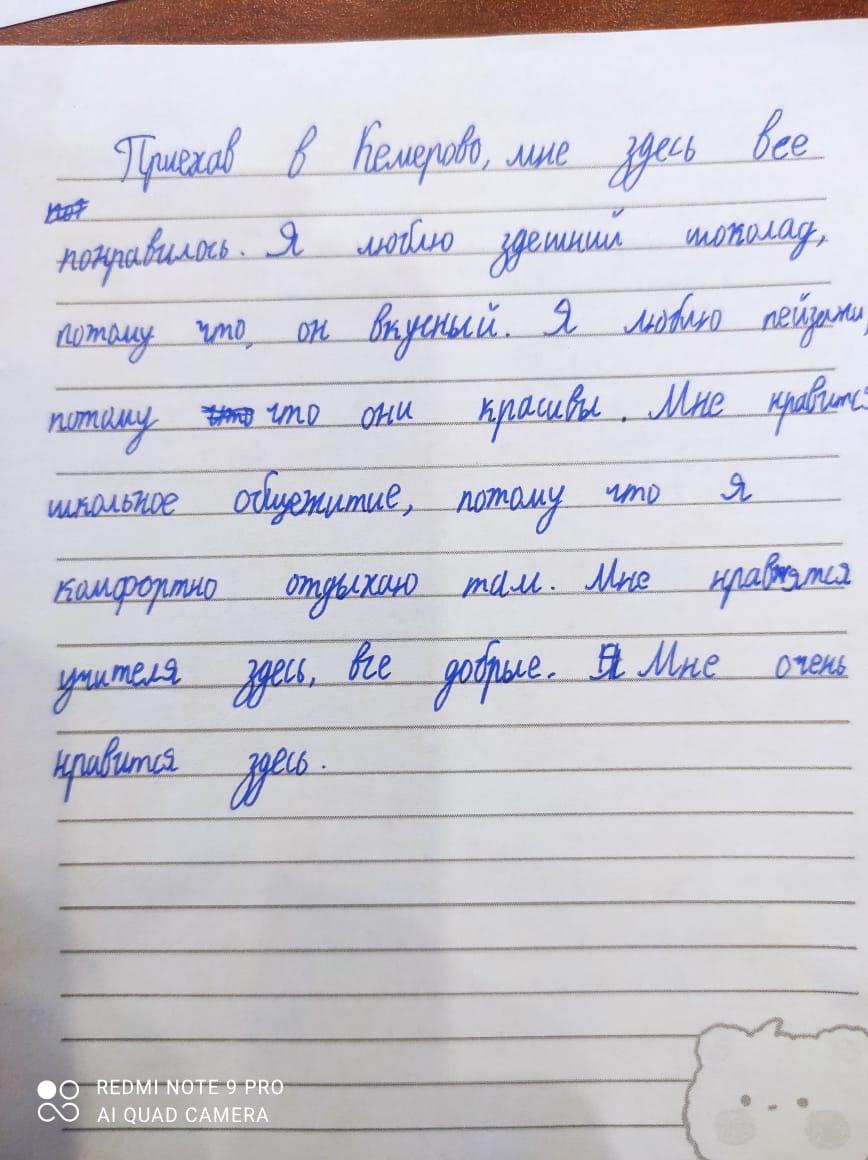 Приехав в Кемерово, мне здесь все
понравилось. Я люблю здешний шоколад,
потому что, он вкусный. Я люблю пейзажи,
потому что они красивы. Мне нравится
школьное общежитие, потому что я
комфортно отдыхаю там. Мне нравятся
учителя здесь, все добрые. Мне очень
нравится здесь.
REDMI NOTE 9 PRO
AI QUAD CAMERA